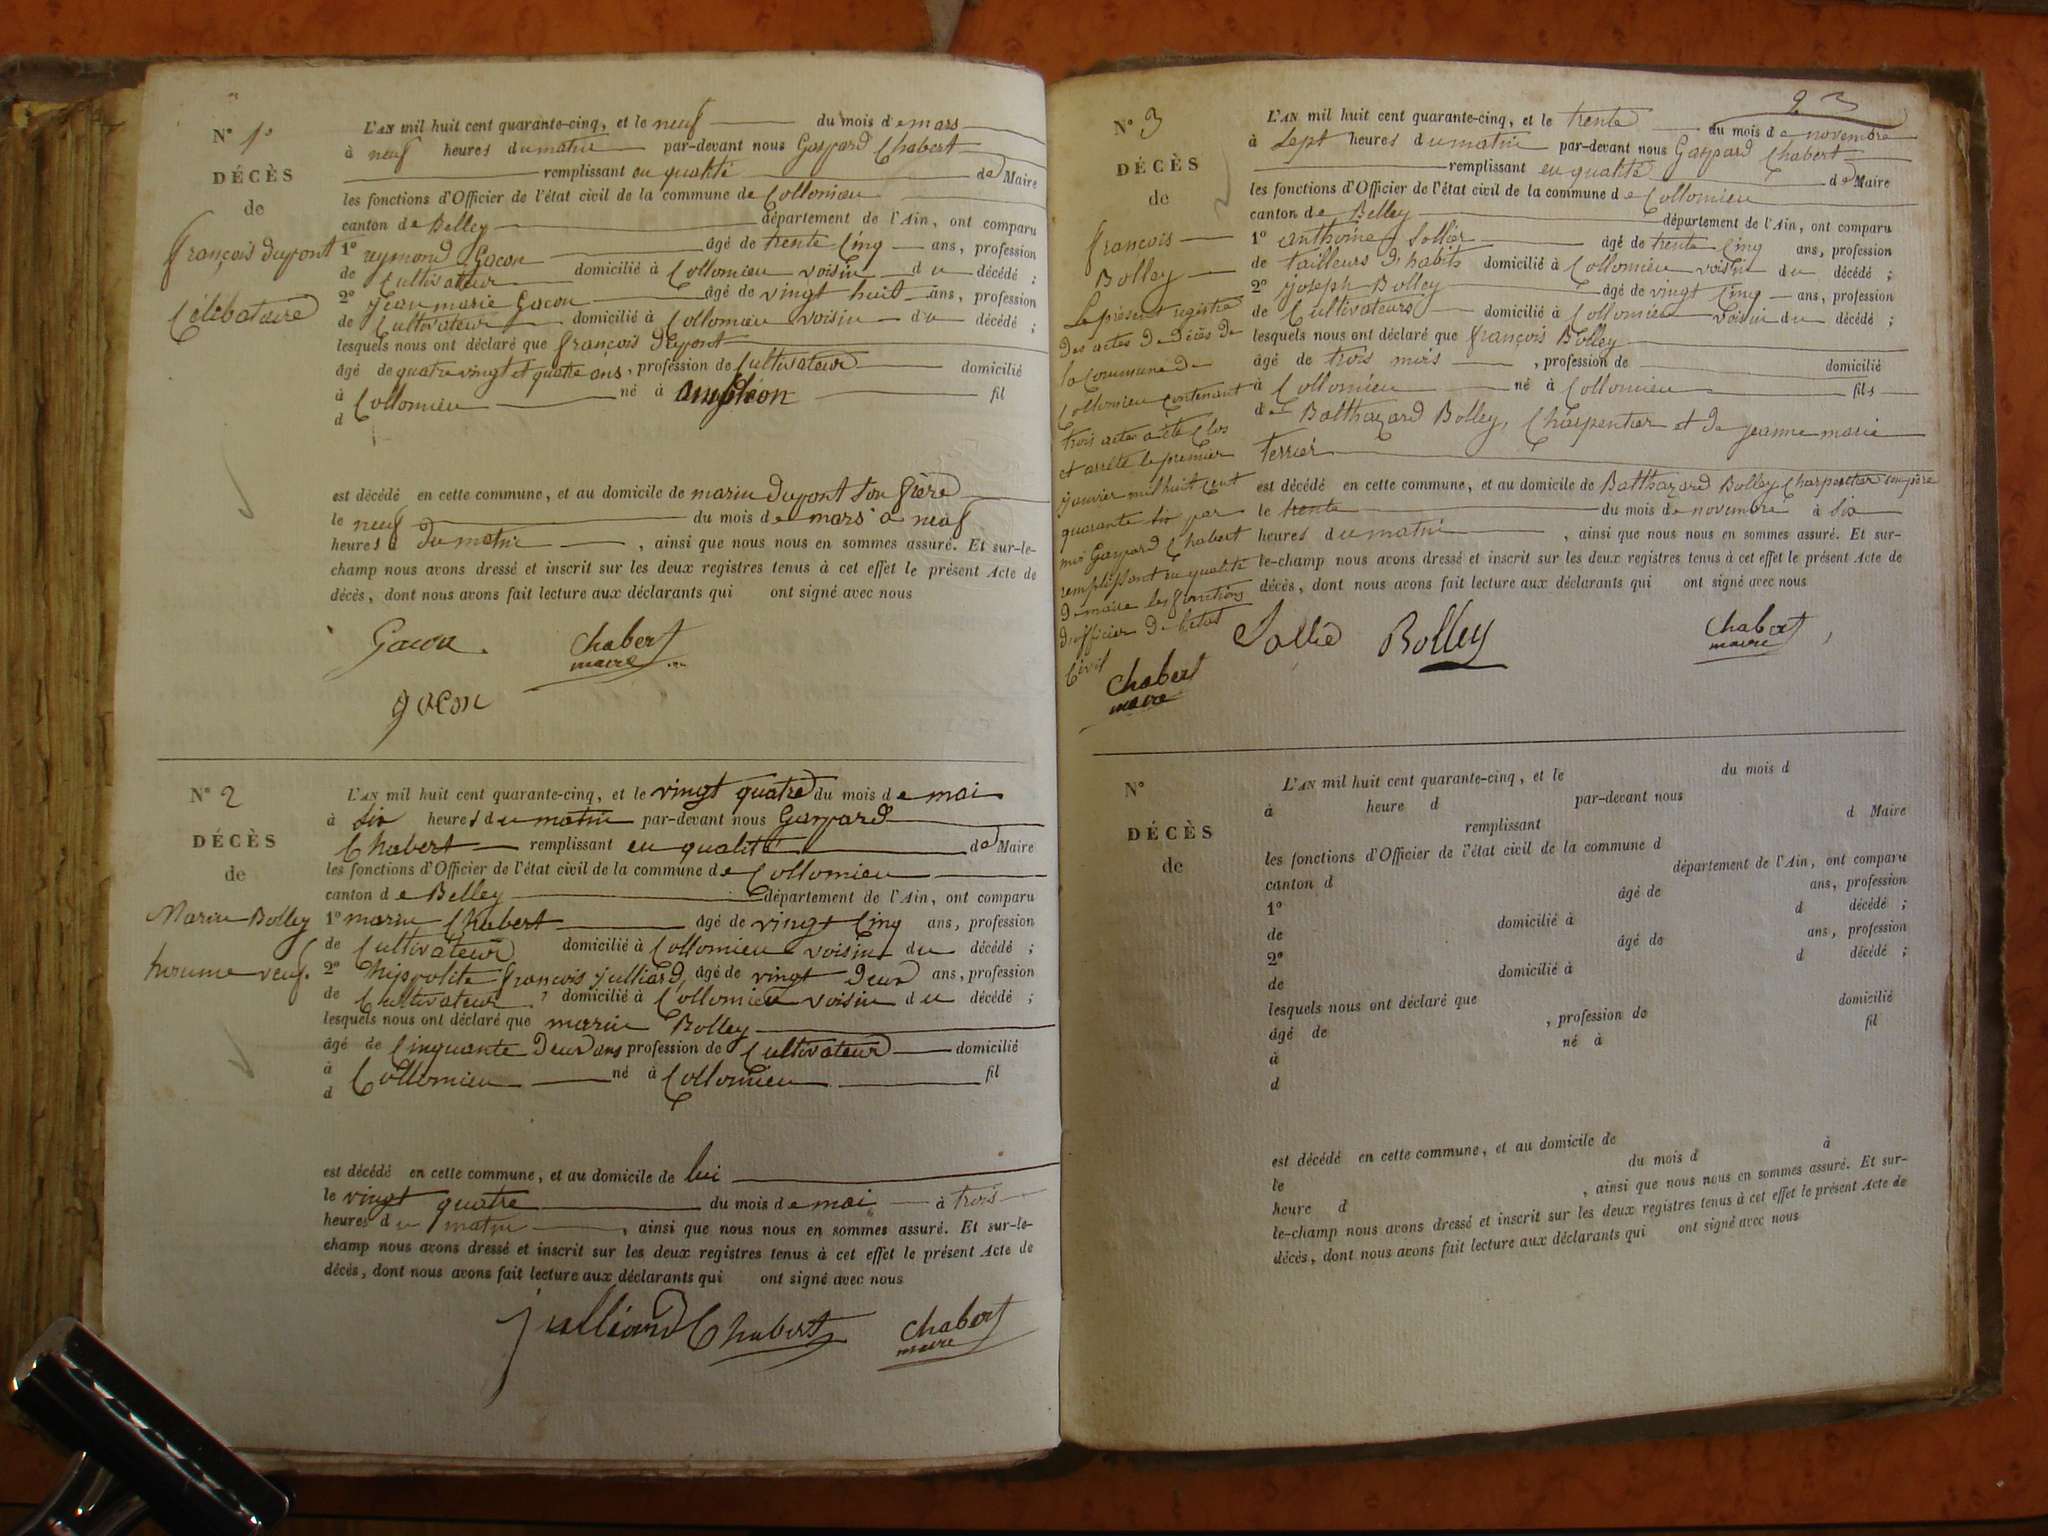 N° 1er
DÉCÈS
de
françois dupont
Célébataire
L'AN mil huit cent quarante-cinq, et le neuf du mois de mars
à neuf heures du matin par-devant nous Gaspard Chabert
remplissant en qualité de Maire
les fonctions d'Officier de l'état civil de la commune de Collomieu
canton de Belley département de l'Ain, ont comparu
1° reymond Gacon âgé de trente Cinq ans, profession
de Cultivateur domicilié à Collomieu voisin du décédé ;
2° jean marie Gacon âgé de vingt huit ans, profession
de Cultivateur domicilié à Collomieu voisin du décédé ;
lesquels nous ont déclaré que françois dupont
âgé de quatre vingt et quatre ans, profession de Cultivateur domicilié
à Collomieu né à fil
d
est décédé en cette commune, et au domicile de marin dupont Son frère
le neuf du mois de mars à neuf
heures du matin, ainsi que nous nous en sommes assuré. Et sur-le-
champ nous avons dressé et inscrit sur les deux registres tenus à cet effet le présent Acte de
décès, dont nous avons fait lecture aux déclarants qui ont signé avec nous
Gacon. Chabert
maire
gacon
N° 2
DÉCÈS
de
Marin Bolley
homme veuf.
L'AN mil huit cent quarante-cinq, et le vingt quatre du mois de mai
à Six heures du matin par-devant nous Gaspard
Chabert remplissant en qualité de Maire
les fonctions d'Officier de l'état civil de la commune de Collomieu
canton de Belley département de l'Ain, ont comparu
1° marin Chabert âgé de vingt Cinq ans, profession
de Cultivateur domicilié à Collomieu voisin du décédé ;
2° hippolite françois julliard, âgé de vingt Deux ans, profession
de Cultivateur, domicilié à Collomieu voisin du décédé ;
lesquels nous ont déclaré que marin Bolley
âgé de Cinquante Deux ans profession de Cultivateur domicilié
à Collomieu né à Collomieu fil
d
est décédé en cette commune, et au domicile de lui
le vingt quatre du mois de mai à trois
heures du matin, ainsi que nous nous en sommes assuré. Et sur-le-
champ nous avons dressé et inscrit sur les deux registres tenus à cet effet le présent Acte de
décès, dont nous avons fait lecture aux déclarants qui ont signé avec nous
julliard Chabert Chabert
maire
N° 3
DÉCÈS
de
francois
Bolley
Le présent registre
des actes de Décès de
la Commune de
Collomieu contenant
trois actes a été Clos
et arrêté le premier
janvier mil huit cent
quarante Six par
moi Gaspard Chabert
remplissant en qualité
de maire les fonctions
d'officier de l'etat
Civil
Chabert
maire
L'AN mil huit cent quarante-cinq, et le trente du mois de novembre
à Sept heures du matin par-devant nous Gaspard Chabert
remplissant en qualité de Maire
les fonctions d'Officier de l'état civil de la commune de Collomieu
canton de Belley département de l'Ain, ont comparu
1° anthoine Sollier âgé de trente Cinq ans, profession
de tailleurs d'habits domicilié à Collomieu voisin du décédé ;
2° joseph Bolley âgé de vingt Cinq ans, profession
de Cultivateurs domicilié à Collomieu voisin du décédé ;
lesquels nous ont déclaré que françois Bolley
âgé de trois mois, profession de domicilié
à Collomieu né à Collomieu fils
de Balthazard Bolley, Charpentier et de jeanne marie
terrier
est décédé en cette commune, et au domicile de Balthazard Bolley Charpentier son père
le trente du mois de novembre à Six
heures du matin, ainsi que nous nous en sommes assuré. Et sur-
le-champ nous avons dressé et inscrit sur les deux registres tenus à cet effet le présent Acte de
décès, dont nous avons fait lecture aux déclarants qui ont signé avec nous
Bolley Chabert
maire
N°
DÉCÈS
de
L'AN mil huit cent quarante-cinq, et le du mois d
à heure d par-devant nous
remplissant d Maire
les fonctions d'Officier de l'état civil de la commune d
canton d département de l'Ain, ont comparu
1° âgé de ans, profession
de domicilié à d décédé ;
2° âgé de ans, profession
de domicilié à d décédé ;
lesquels nous ont déclaré que
âgé de , profession de domicilié
à né à fil
d
est décédé en cette commune, et au domicile de
le du mois d à
heure d , ainsi que nous nous en sommes assuré. Et sur-
le-champ nous avons dressé et inscrit sur les deux registres tenus à cet effet le présent Acte de
décès, dont nous avons fait lecture aux déclarants qui ont signé avec nous